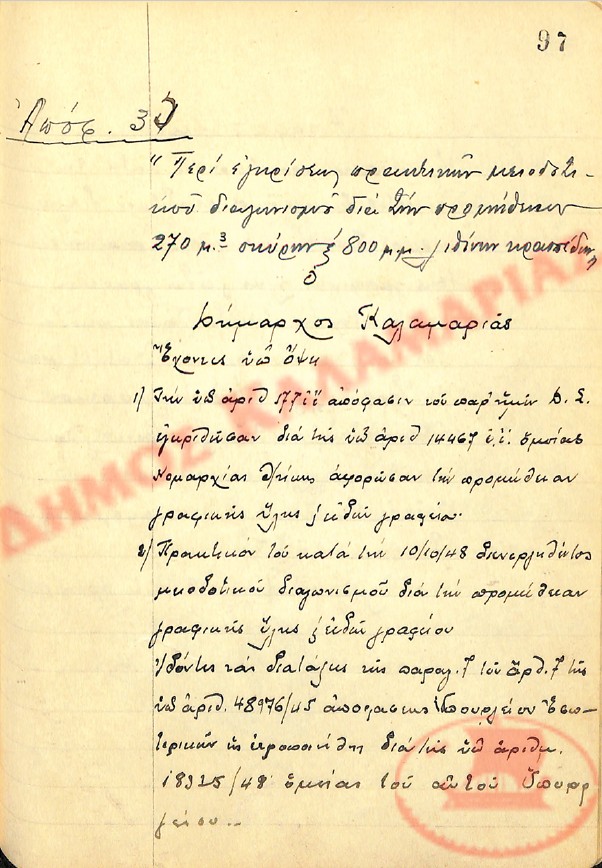 97
Ἀπόφ. 37
"Περί ἐγκρίσεως πρακτικοῦ μειοδοτι-
κοῦ διαγωνισμοῦ διά τήν προμήθειαν
270 μ.³ σκύρων ξ 800 μ.μ. λιθίνων κρασπέδων
ὁ
Δήμαρχος Καλαμαριᾶς
Ἔχοντες ὑπ' ὄψει
1) Τήν ὑπ' ἀριθ 177 ἀπόφασιν τοῦ παρ' ἡμῖν Δ. Σ.
ἐγκριθεῖσαν διά τῆς ὑπ' ἀριθ 14467 ἐ.ἔ. ὁμοίας
Νομαρχίας Θ/νίκης ἀφορῶσαν τήν προμήθειαν
γραφικῆς ὕλης ξ εἰδῶν γραφείου.
2) Πρακτικόν τοῦ κατά τήν 10/10/48 διενεργηθέντος
μειοδοτικοῦ διαγωνισμοῦ διά τήν προμήθειαν
γραφικῆς ὕλης ξ εἰδῶν γραφείου
Ἰδόντες τάς διατάξεις τῆς παραγ. 7 τοῦ ἄρθ. 7 τῆς
ὑπ' ἀριθ. 48976/45 ἀποφάσεως Ὑπουργείου Ἐσω-
τερικῶν ὡς ἐτροποποιήθη διά τῆς ὑπ' ἀριθμ.
18325/48 ὁμοίας τοῦ αὐτοῦ Ὑπουρ
γείου..
ΔΗΜΟΣ ΚΑΛΑΜΑΡΙΑΣ